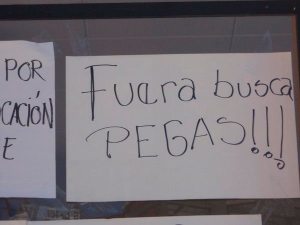 POR
CACIÓN
E
Fuera busca
PEGAS!!!